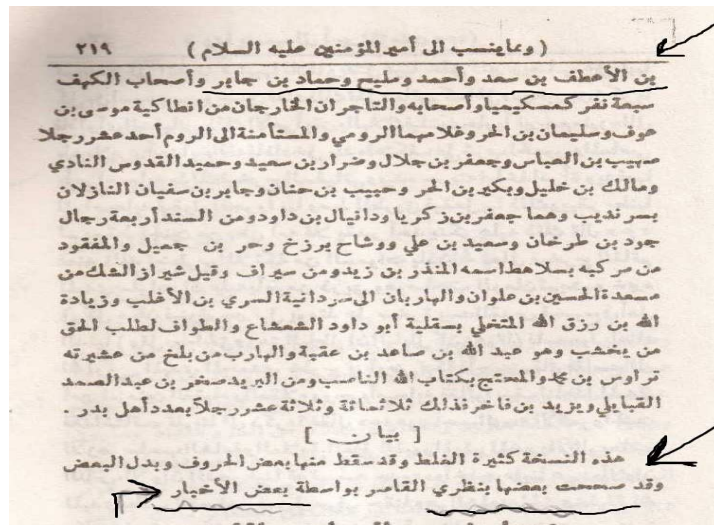 ( ومما ينسب الى أمير المؤمنين عليه السلام ) ٢١٩
بن الأعطف بن سعد وأحمد ومليح وحماد بن جابر وأصحاب الكهف
سبعة نفر كمسكيميا وأصحابه والتاجران الخارجان من انطاكية موسى بن
عوف وسليمان بن الحر وغلامهما الرومي والمستأمنة الى الروم أحد عشر رجلا
صهيب بن العباس وجعفر بن جلال وضرار بن سعيد وحميد القدوس النادي
ومالك بن خليل وبكير بن الحر وحبيب بن حنان وجابر بن سفيان النازلان
بسرنديب وهما جعفر بن زكريا ودانيال بن داود ومن السند أربعة رجال
جود بن طرخان وسعيد بن علي ووشاح برزخ وحر بن جميل والمفقود
من مركبه بسلاهط اسمه المنذر بن زيد ومن سيراف وقيل شيراز الشك من
مسعدة الحسين بن علوان والهاربان الى سردانية السري بن الأغلب وزيادة
الله بن رزق الله المتخلي بسقلية أبو داود الشعشاع والطواف لطلب الحق
من يخشب وهو عبد الله بن صاعد بن عقبة والهارب من بلخ من عشيرته
تراوس بن محمد والمحتج بكتاب الله الناصب ومن البريد صخر بن عبد الصمد
القبايلي ويزيد بن فاخر فذلك ثلاثمائة وثلاثة عشر رجلاً بعدد أهل بدر .
[ بيان ]
هذه النسخة كثيرة الغلط وقد سقط منها بعض الحروف وبدل البعض
وقد صححت بعضها بنظري القاصر بواسطة بعض الأخبار